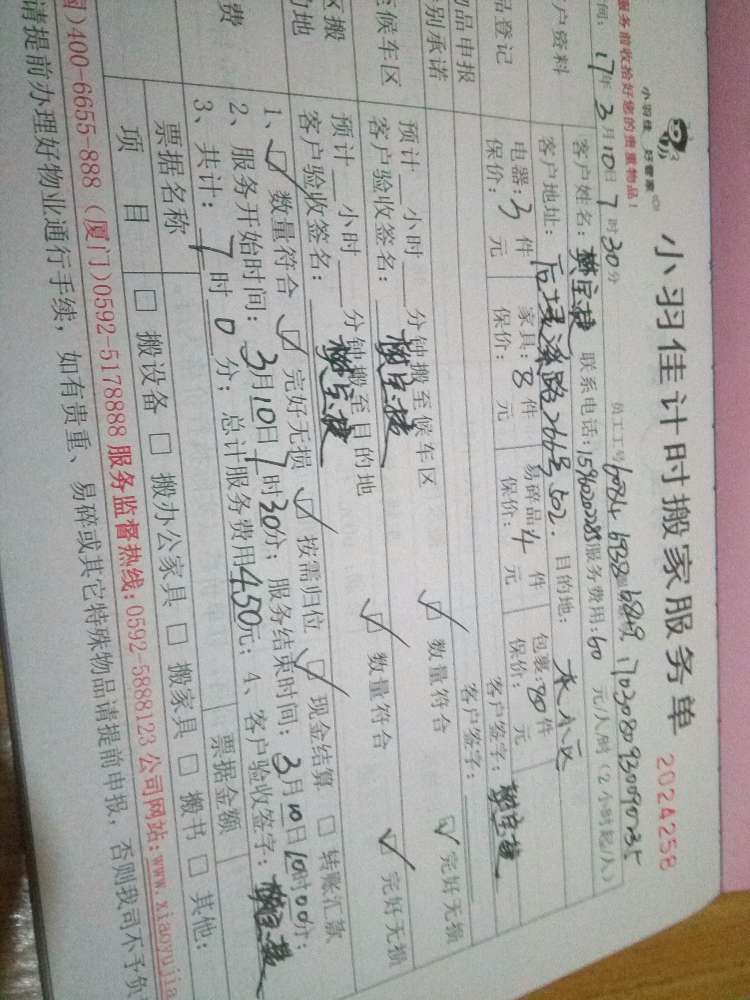 服务前收拾好您的贵重物品！
小羽佳 好管家
小羽佳计时搬家服务单 2024258
间：17年3月10日7时30分 员工工号 6084 6938 6849 1703080930090235
户资料 客户姓名： 联系电话： 服务费用：60元/人/时（2小时起/人）
客户地址： 路 502. 目的地： 本小区
品登记 电器：3件 家具：8件 易碎品：4件 包裹：80件
保价： 元 保价： 元 保价： 元 保价： 元
物品申报 客户签字：
别承诺 客户签字：
候车区 预计 小时 分钟搬至候车区 数量符合 完好无损
客户验收签名：
区搬 预计 小时 分钟搬至目的地 数量符合 完好无损
的地 客户验收签名：
1、 数量符合 完好无损 按需归位 现金结算 转账汇款
费 2、服务开始时间：3月10日7时30分；服务结束时间：3月10日10时00分；
3、共计：7时0分；总计服务费用450元；4、客户验收签字：
票据名称 票据金额
项 目 搬设备 搬办公家具 搬家具 搬书 其他：
)400-6655-888 (厦门)0592-5178888 服务监督热线：0592-5888123 公司网站：www.xiaoyujia
请提前办理好物业通行手续，如有贵重、易碎或其它特殊物品请提前申报，否则我司不予负